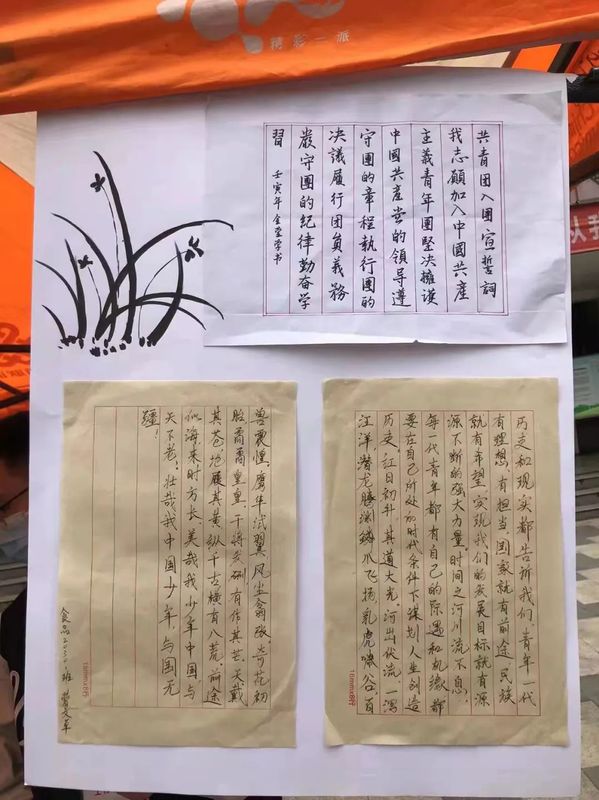 精彩一派
共青团入團宣誓詞
我志願加入中國共産
主義青年團堅决擁護
中國共産党的領导遵
守團的章程執行團的
决議履行团員義務
嚴守團的紀律勤奋学
習 壬寅年金莹学书
历史和现实都告诉我们,青年一代
有理想、有担当,国家就有前途,民族
就有希望,实现我们的发展目标就有源
源不断的强大力量。时间之河川流不息,
每一代青年都有自己的际遇和机缘,都
要在自己所处的时代条件下谋划人生创造
历史。红日初升,其道大光。河出伏流,一泻
汪洋。潜龙腾渊,鳞爪飞扬。乳虎啸谷,百
兽震惶。鹰隼试翼,风尘翕张。奇花初
胎,矞矞皇皇。干将发硎,有作其芒。天戴
其苍,地履其黄。纵千古,横有八荒。前途
似海,来时方长。美哉我少年中国,与
天不老!壮哉,我中国少年,与国无
疆!
食品2030班